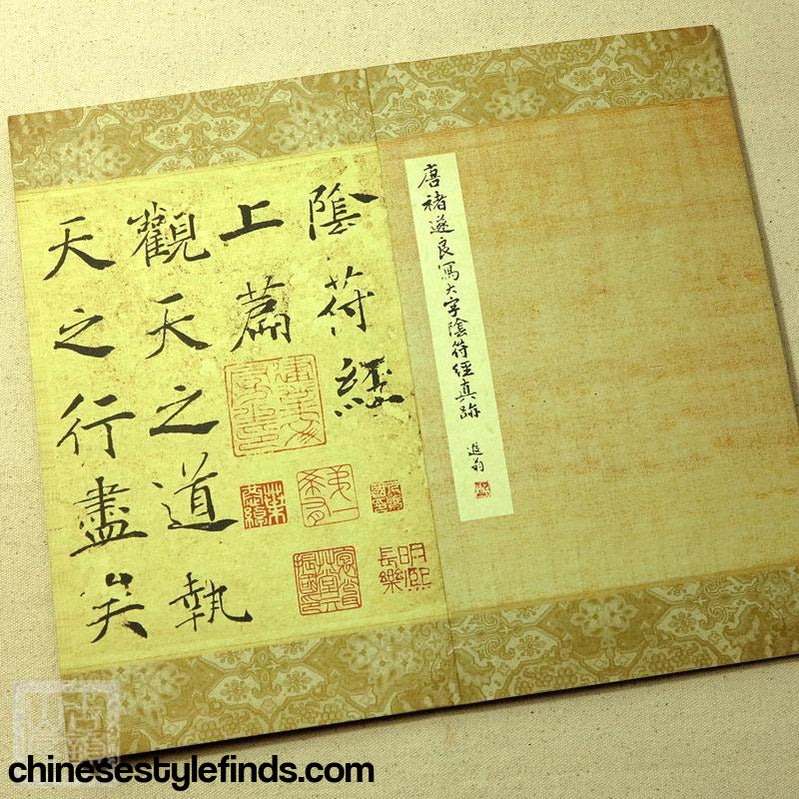 唐褚遂良寫大字陰符經真跡
陰符經
上篇
觀天之道執
天之行盡矣
明熙
長樂
chinesestylefinds.com